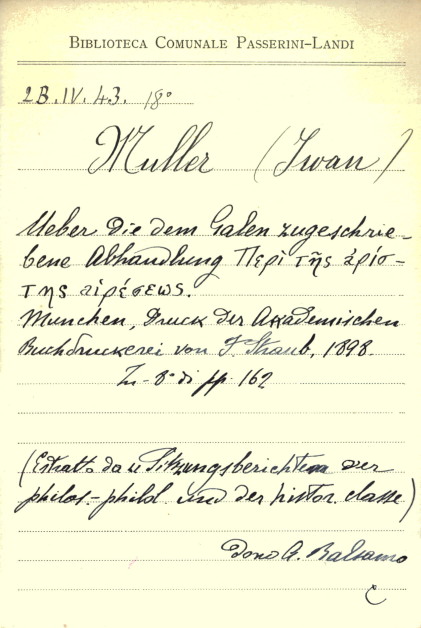 BIBLIOTECA COMUNALE PASSERINI-LANDI
2B.IV.43. 18°
Muller (Iwan)
Ueber die dem Galen zugeschrie-
bene Abhandlung Περὶ τῆς ἀρίσ-
της αἱρέσεως.
Munchen, Druck der Akademischen
Buchdruckerei von F. Straub, 1898.
In-8° di pp. 162
(Estratto da Sitzungsberichten der
philos.-philol. und der histor. classe)
Dono A. Balsamo
C